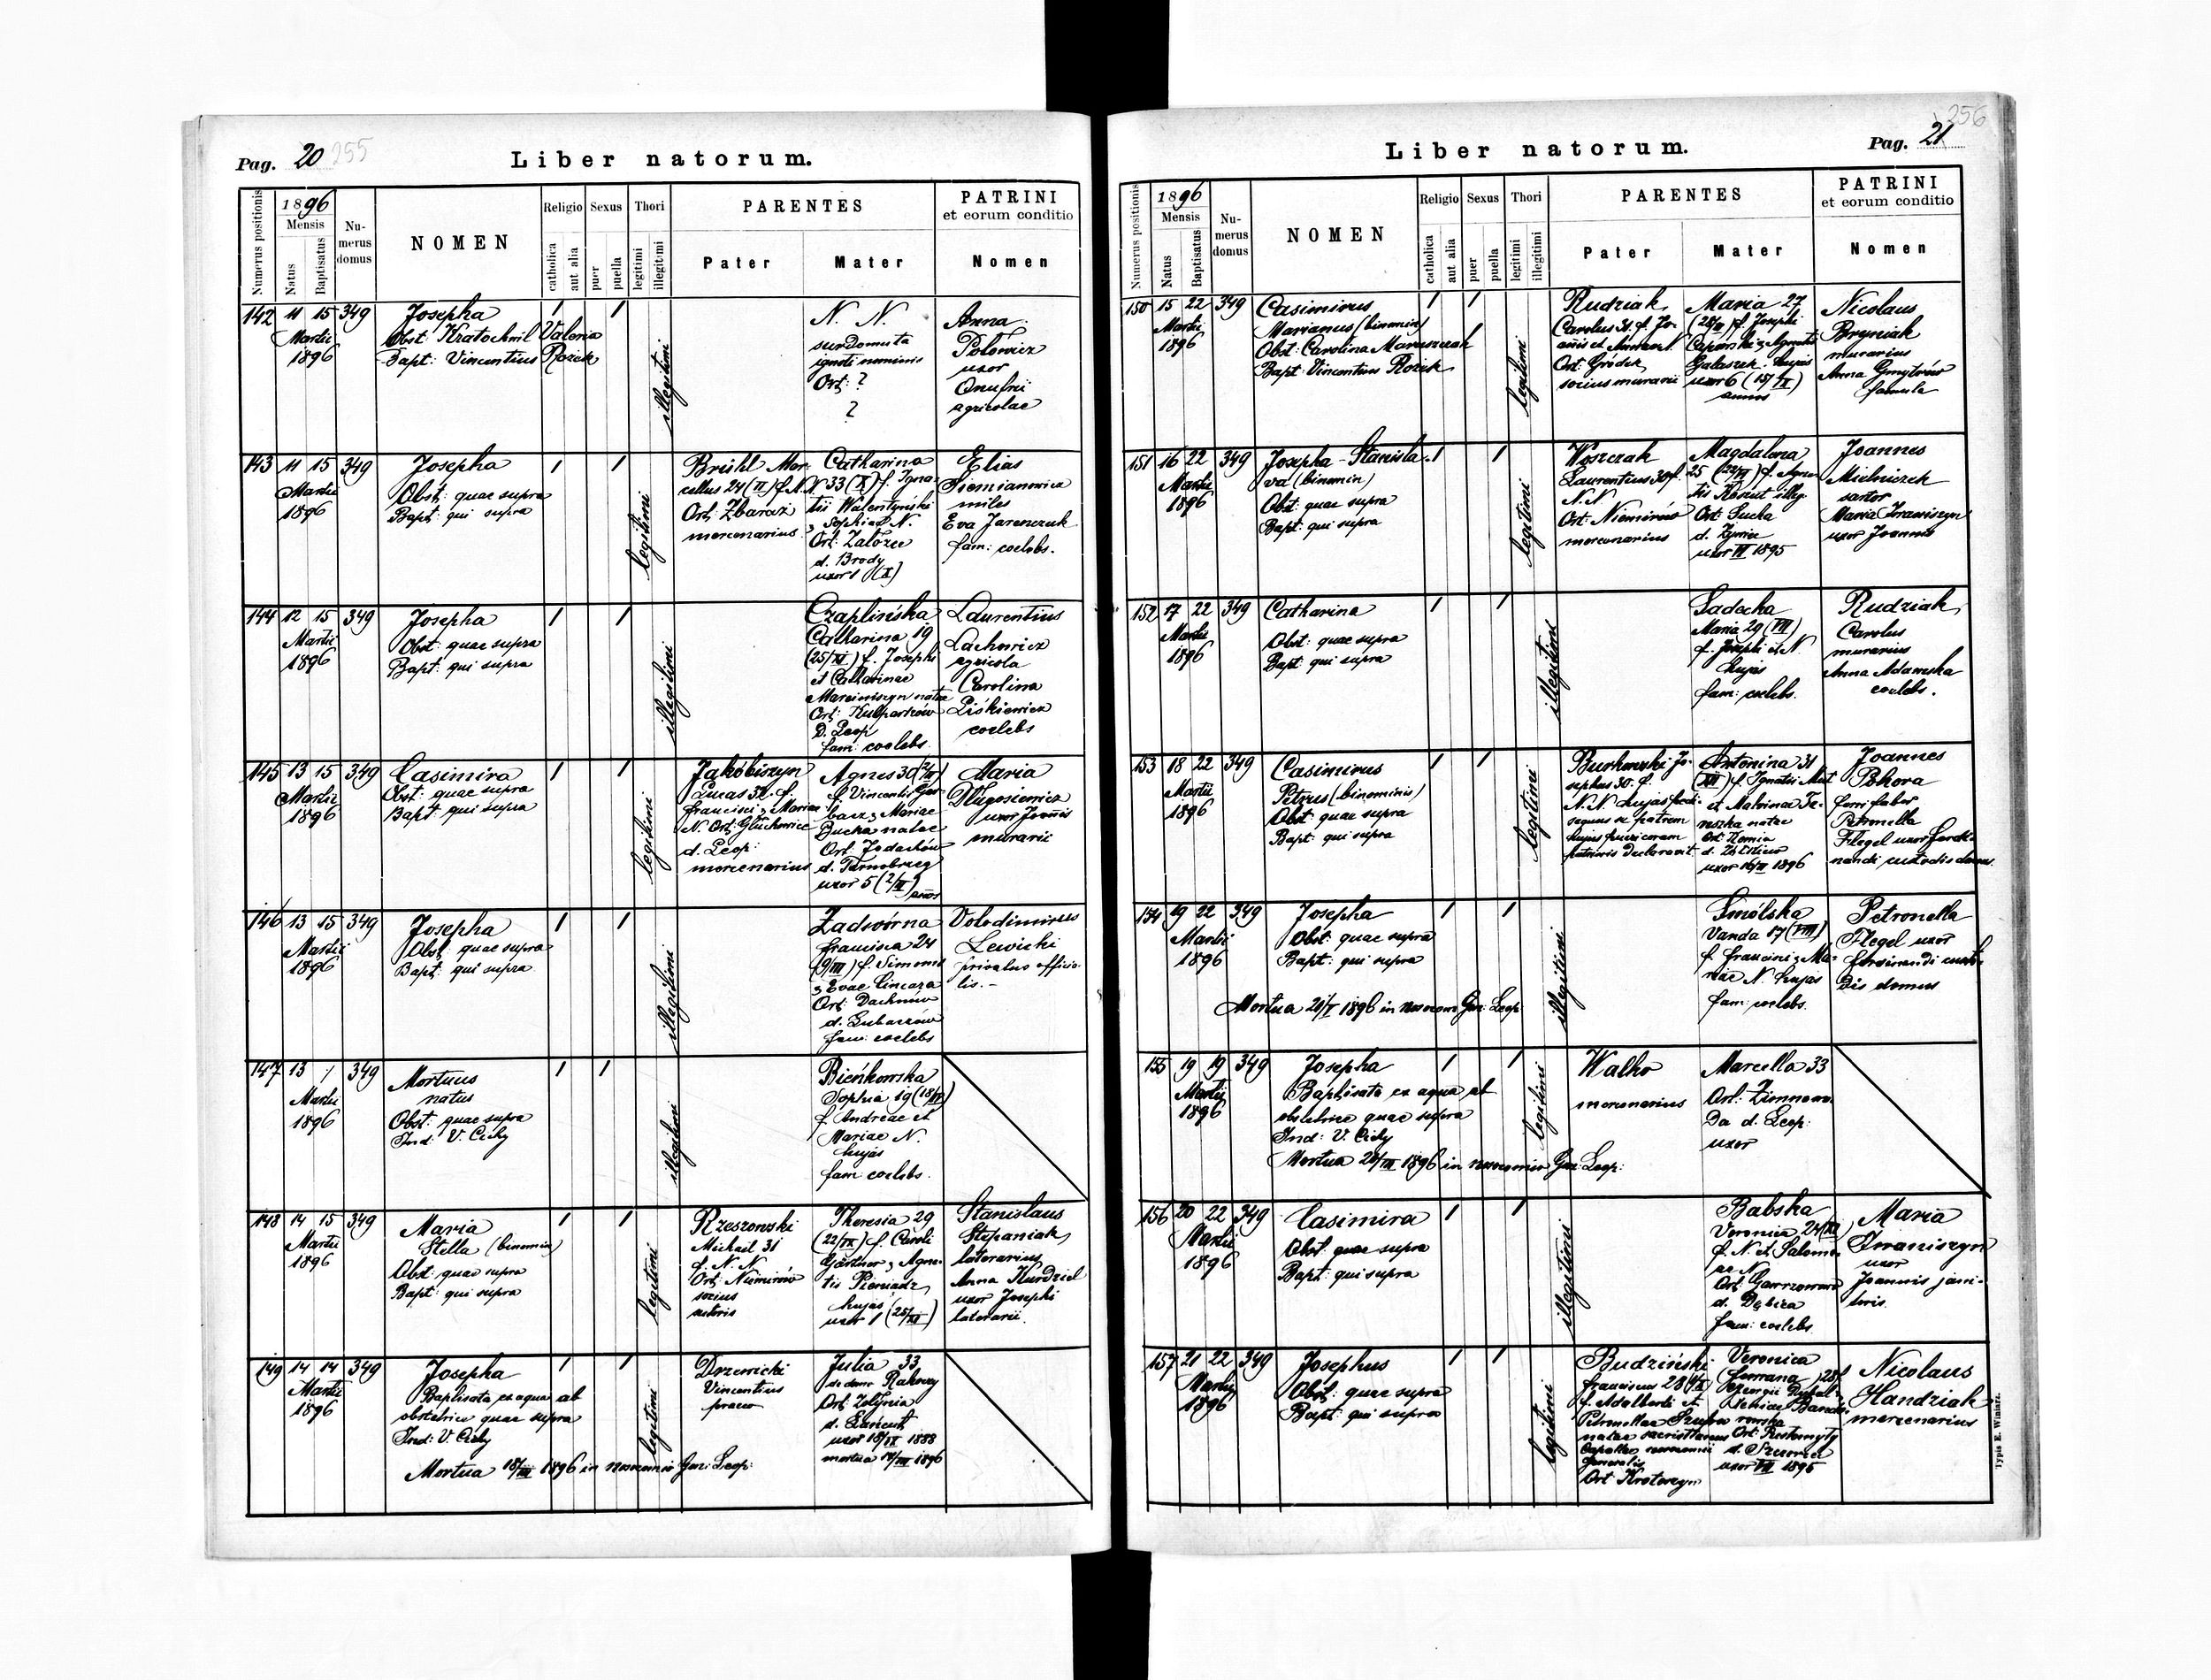 Pag. 20 255
Liber natorum.
Numerus positionis
1896
Mensis
Natus
Baptisatus
Numerus domus
NOMEN
Religio
catholica
aut alia
Sexus
puer
puella
Thori
legitimi
illegitimi
PARENTES
Pater
Mater
PATRINI
et eorum conditio
Nomen
142 11 15 349
Martii
1896
Josepha
Obst: Kratochwil Valeria
Bapt: Vincentius Rozek
illegitimi
N. N.
surdomuta
ignoti nominis
Ort: ?
?
Anna
Polowicz
uxor
Onufrii
agricolae
143 11 15 349
Martii
1896
Josepha
Obst: quae supra
Bapt: qui supra
legitimi
Brühl Mar-
cellus 24 (II) f. N.N.
Ort: Zbaraż
mercenarius
Catharina
33 (X) f. Igna-
tii Walentyński
Sophiae N.
Ort: Załoźce
d. Brody
uxor 1 (X)
Elias
Siemianowicz
miles
Eva Jaremczuk
fam: coelebs.
144 12 15 349
Martii
1896
Josepha
Obst: quae supra
Bapt: qui supra
illegitimi
Czaplińska
Catharina 19
(25/XI) f. Josephi
et Catharinae
Marciniszyn natae
Ort: Kulparków
D. Leop
fam: coelebs.
Laurentius
Lachowicz
agricola
Carolina
Liśkiewicz
coelebs
145 13 15 349
Martii
1896
Casimira
Obst: quae supra
Bapt: qui supra
legitimi
Jakóbiszyn
Lucas 32 f.
Francisci & Mariae
N. Ort: Głuchowice
d. Leop:
mercenarius
Agnes 30
f. Vincentii Gar-
barz & Mariae
Bucka natae
Ort: Jadachów
d. Tarnobrzeg
uxor 5 (2/II)
annos
Maria
Długosiewicz
uxor Joannis
murarii
146 13 15 349
Martii
1896
Josepha
Obst: quae supra
Bapt: qui supra
illegitimi
Zadwórna
Francisca 24
(9/III) f. Simonis
& Evae
Ort: Dachnów
d. Lubaczów
fam: coelebs
Volodimirus
Lewicki
privatus officia-
lis.-
147 13 / 349
Martii
1896
Mortuus
natus
Obst: quae supra
Ind: V. Cichy
illegitimi
Bieńkowska
Sophia 19
f. Andreae et
Mariae N.
hujas
fam: coelebs.
148 14 15 349
Martii
1896
Maria
Stella (binomin)
Obst: quae supra
Bapt: qui supra
legitimi
Rzeszowski
Michael 31
f. N. N.
Ort: Niemirów
socius
sutoris
Theresia 29
(22/IX) f. Caroli
Gärtner & Agne-
tis Pieniadz
hujas
uxor 1 (25/XI)
Stanislaus
Stepaniak
laterarius
Anna Kurdziel
uxor Josephi
laterarii.
149 14 14 349
Martii
1896
Josepha
Baptisata ex aqua ab
obstetrice quae supra
Ind: V. Cichy
Mortua 18/III 1896 in nosocomio Gen: Leop:
legitimi
Drzewicki
Vincentius
praeco
Julia 33
de domo Rakoczy
Ort: Żołynia
d. Łańcut
uxor 18/IX 1888
mortua 14/III 1896
Pag. 21 256
Liber natorum.
Numerus positionis
1896
Mensis
Natus
Baptisatus
Numerus domus
NOMEN
Religio
catholica
aut alia
Sexus
puer
puella
Thori
legitimi
illegitimi
PARENTES
Pater
Mater
PATRINI
et eorum conditio
Nomen
150 15 22 349
Martii
1896
Casimirus
Marianus (binomin)
Obst: Carolina Maruszczak
Bapt: Vincentius Rozek
legitimi
Rudziak
Carolus 31. f. Jo-
annis et
Ort: Gródek
socius murarii
Maria 27
f. Josephi
& Agnetis
Galaszek hujas
uxor 6 (15/II)
annos
Nicolaus
Bryniak
murarius
Anna Gmytrów
famula
151 16 22 349
Martii
1896
Josepha - Stanisla-
va (binomin)
Obst: quae supra
Bapt: qui supra
legitimi
Woszczak
Laurentius 30 f.
N. N.
Ort: Niemirów
mercenarius
Magdalena
25 (22/VII) f. Agne-
tis Koszut illeg.
Ort: Sucha
d. Żywiec
uxor VI 1895
Joannes
Mielniczek
sartor
Maria Iwaniszyn
uxor Joannis
152 17 22 349
Martii
1896
Catharina
Obst: quae supra
Bapt: qui supra
illegitimi
Sadecka
Maria 29 (VII)
f. Josephi et N
hujas
fam: coelebs.
Rudziak
Carolus
murarius
Anna Adamska
coelebs.
153 18 22 349
Martii
1896
Casimirus
Petrus (binominis)
Obst: quae supra
Bapt: qui supra
legitimi
Burkowski Jo-
sephus 30. f.
N. N. hujas
se patrem
hujus
declaravit
Antonina 31
(XII) f. Ignatii
et Malvinae
natae
uxor 16/II 1896
Joannes
Pohora
ferri faber
Petronella
Flegel uxor Ferdi-
nandi custodis domus
154 19 22 349
Martii
1896
Josepha
Obst: quae supra
Bapt: qui supra
Mortua 21/V 1896 in nosocom Gen: Leop:
illegitimi
Smólska
Vanda 17 (VIII)
f. Francisci & Ma-
riae N. hujas
fam: coelebs.
Petronella
Flegel uxor
Ferdinandi custo-
dis domus
155 19 19 349
Martii
1896
Josepha
Baptisata ex aqua ab
obstetrice quae supra
Ind: V. Cichy
Mortua 20/III 1896 in nosocomio Gen: Leop:
legitimi
Walko
mercenarius
Marcella 33
Ort: Zimnawo-
Da d. Leop:
uxor
156 20 22 349
Martii
1896
Casimira
Obst: quae supra
Bapt: qui supra
illegitimi
Babska
Veronica 24
f. N. et Salome-
ae N.
Ort:
d. Dębica
fam: coelebs.
Maria
Iwaniszyn
uxor
Joannis jani-
toris.
157 21 22 349
Martii
1896
Josephus
Obst: quae supra
Bapt: qui supra
legitimi
Budziński
Franciscus 28
f. Adalberti et
Petronellae
natae
capellae nosocomii
generalis
Ort: Krotoszyn
Veronica
28
Georgii
Ort:
d.
uxor VII 1895
Nicolaus
Handziak
mercenarius
Typis E. Winiarz.